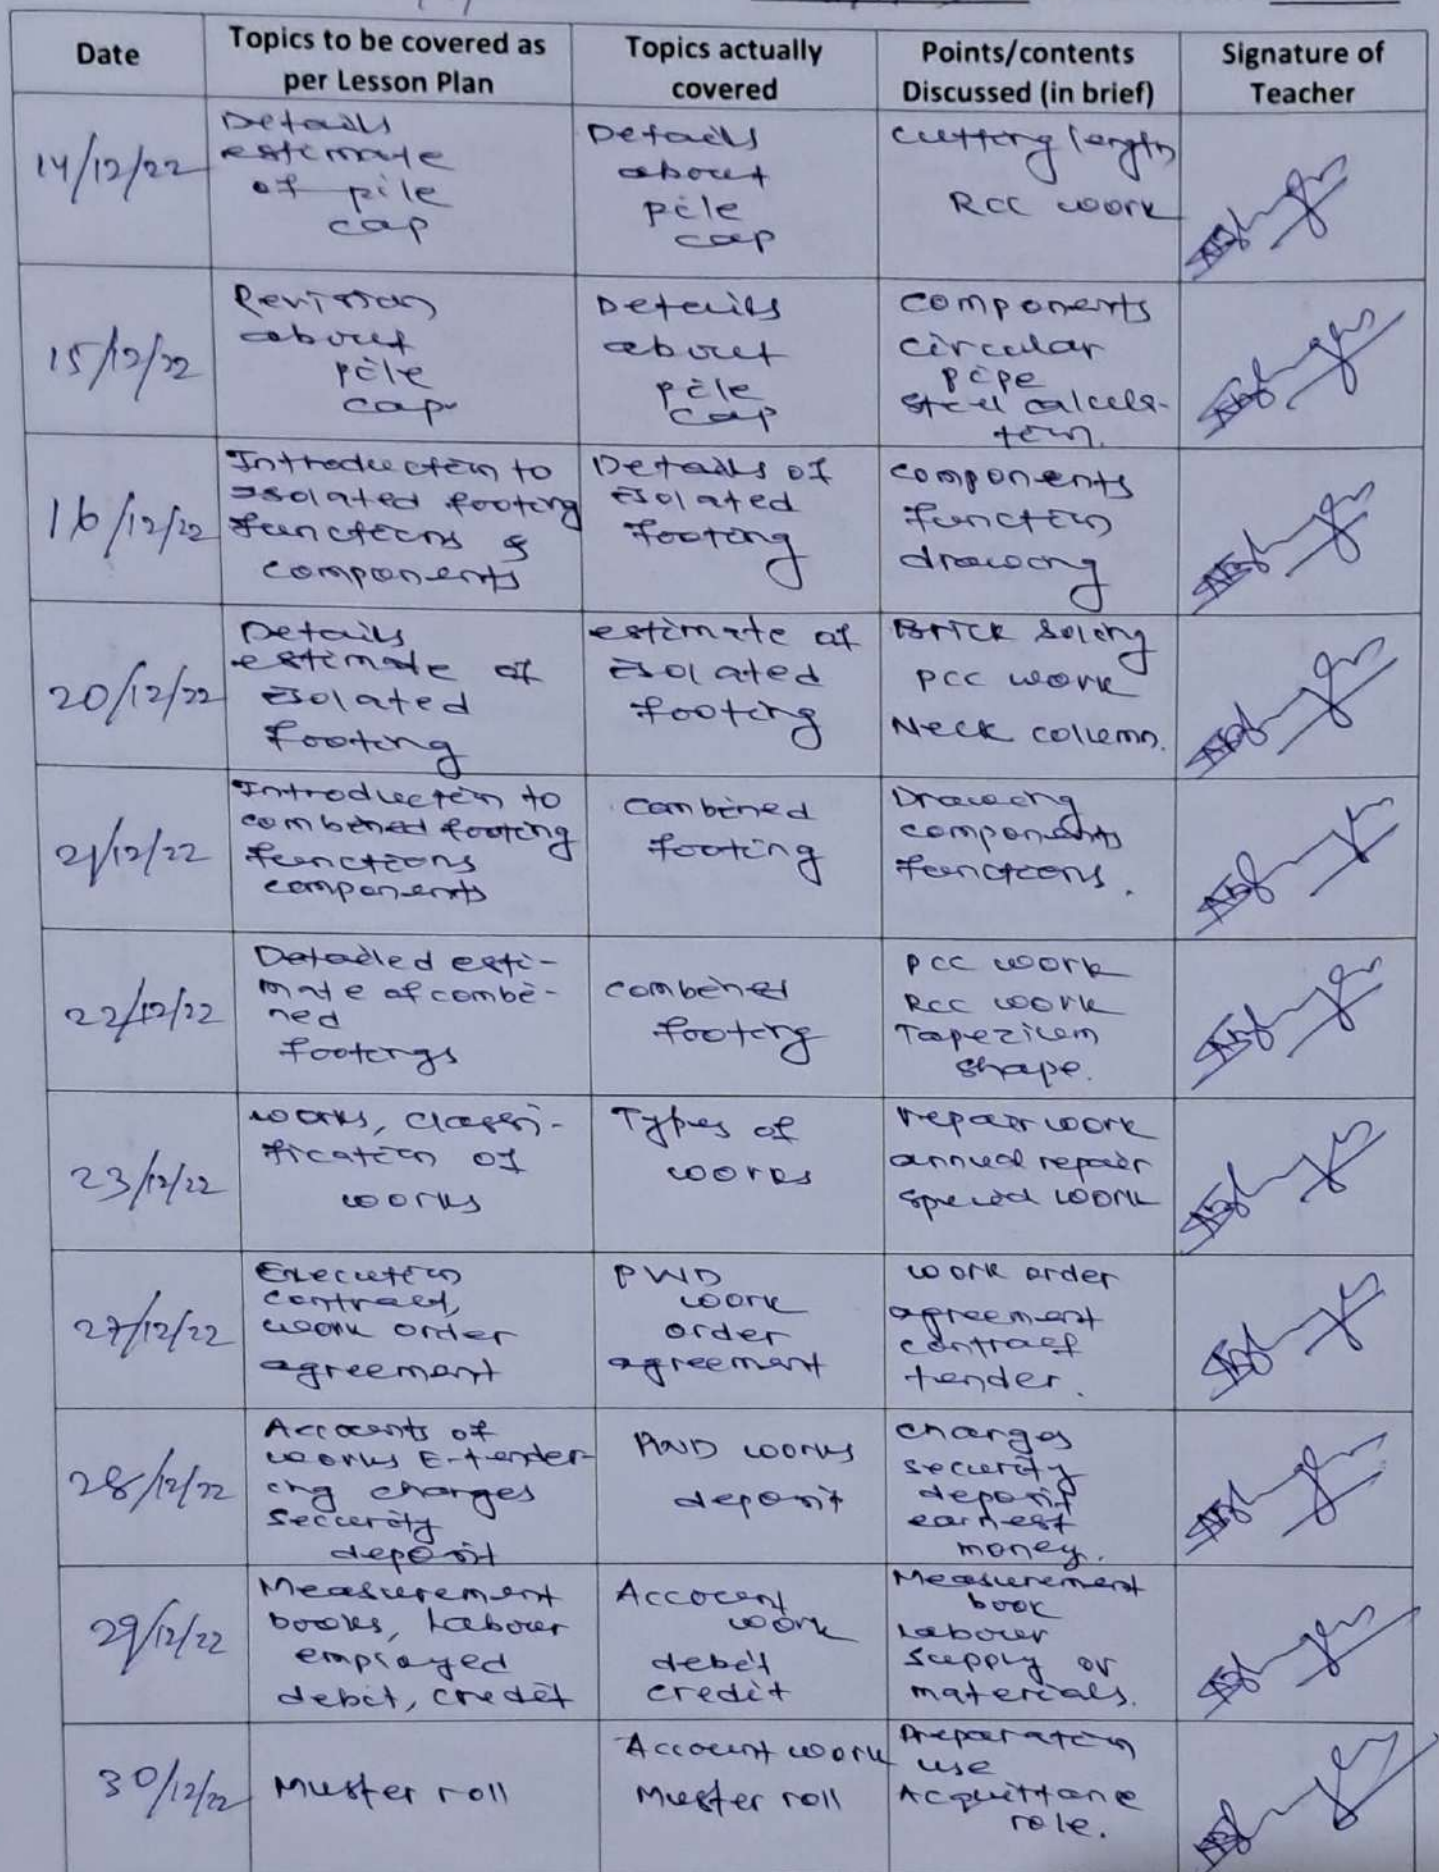 Date
Topics to be covered as
per Lesson Plan
Topics actually
covered
Points/contents
Discussed (in brief)
Signature of
Teacher
14/12/22
Details
estimate
of pile
cap
Details
about
pile
cap
cutting length
RCC work
15/12/22
Revision
about
pile
cap
Details
about
pile
cap
components
circular
pipe
steel calcula-
tion.
16/12/22
Introduction to
isolated footing
functions &
components
Details of
isolated
footing
components
function
drawing
20/12/22
Details
estimate of
isolated
footing
estimate of
isolated
footing
Brick Soling
PCC work
Neck column.
21/12/22
Introduction to
combined footing
functions
components
combined
footing
Drawing
components
functions.
22/12/22
Detailed esti-
mate of combi-
ned
footings
combined
footing
PCC work
RCC work
Tapezium
shape.
23/12/22
works, classi-
fication of
works
Types of
works
repair work
annual repair
special work
27/12/22
Execution
contract,
work order
agreement
PWD
work
order
agreement
work order
agreement
contract
tender.
28/12/22
Accounts of
works E-tender-
ing charges
security
deposit
PWD works
deposit
charges
security
deposit
earnest
money.
29/12/22
Measurement
books, Labour
employed
debit, credit
Account
work
debit
credit
Measurement
book
Labour
supply or
materials.
30/12/22
Muster roll
Account work
Muster roll
Preparation
use
Acquittance
role.